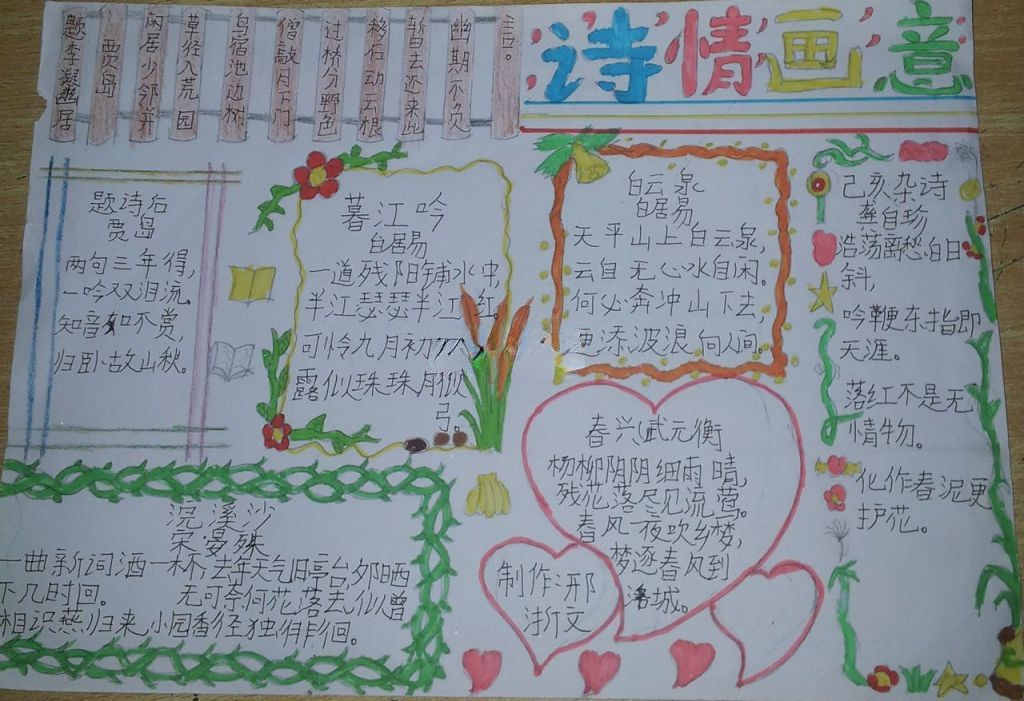 诗情画意
题李凝幽居
贾岛
闲居少邻并
草径入荒园
鸟宿池边树
僧敲月下门
过桥分野色
移石动云根
暂去还来此
幽期不负
言。
题诗后
贾岛
两句三年得，
一吟双泪流。
知音如不赏，
归卧故山秋。
暮江吟
白居易
一道残阳铺水中，
半江瑟瑟半江红。
可怜九月初
露似珠珠月似
弓。
白云泉
白居易
天平山上白云泉，
云自无心水自闲。
何必奔冲山下去，
更添波浪向人间。
己亥杂诗
龚自珍
浩荡离愁白日
斜，
吟鞭东指即
天涯。
落红不是无
情物。
化作春泥更
护花。
浣溪沙
宋晏殊
一曲新词酒一杯，去年天气旧亭台夕阳西
下几时回。 无可奈何花落去，似曾
相识燕归来，小园香径独徘徊。
春兴武元衡
杨柳阴阴细雨晴，
残花落尽见流莺。
春风一夜吹乡梦，
梦逐春风到
洛城。
制作：邢
浙文